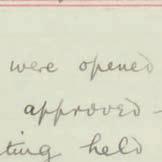 were opened
approved -
ting held